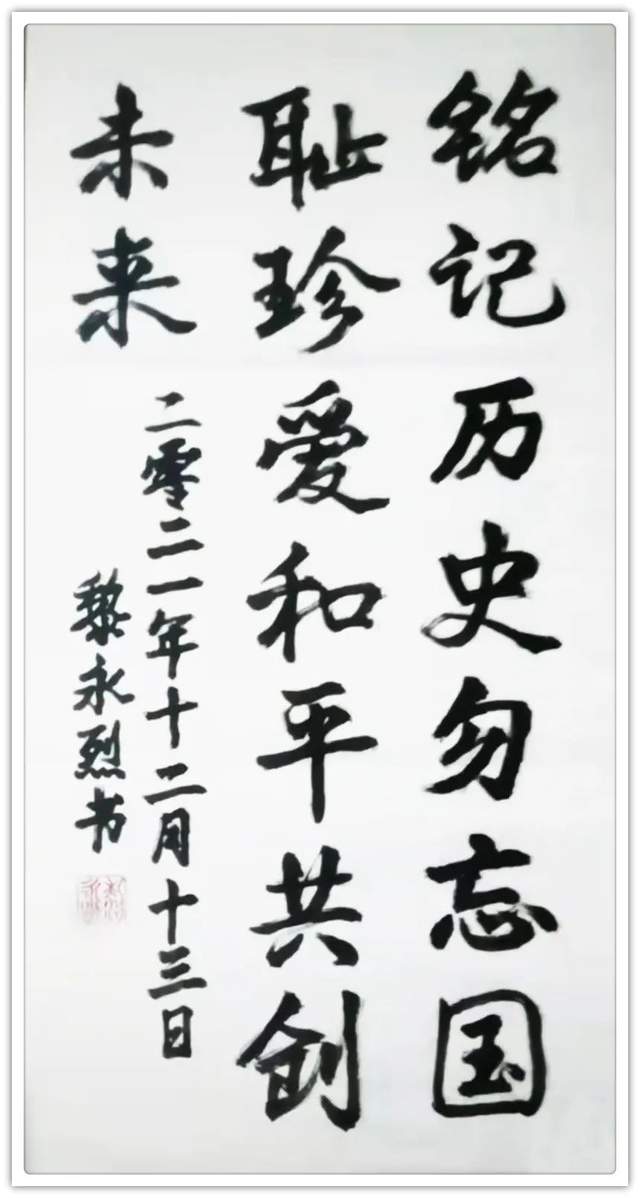 铭记历史勿忘国
耻珍爱和平共创
未来
二零二一年十二月十三日
黎永烈书